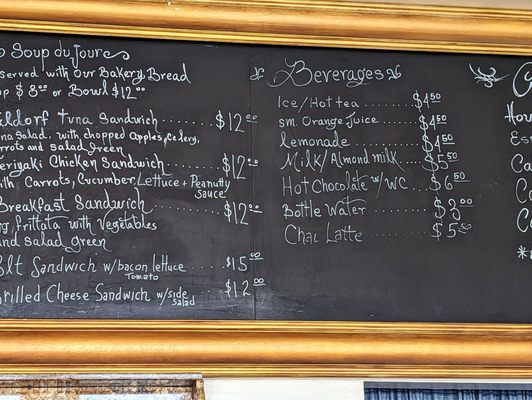 Soup du Jour
served with our Bakery Bread
$8.00 or Bowl $12.00
Tuna Sandwich $12.00
Salad with chopped Apples, Celery,
and salad green
Chicken Sandwich $12.00
with Carrots, Cucumber, Lettuce + Peanutty
Sauce
Breakfast Sandwich $12.00
Frittata with Vegetables
and salad green
Blt Sandwich w/bacon lettuce $15.00
Tomato
Grilled Cheese Sandwich w/side $12.00
Salad
Beverages
Ice/Hot tea $4.50
sm. Orange Juice $4.50
Lemonade $4.50
Milk/Almond milk $5.50
Hot Chocolate w/WC $6.50
Bottle Water $3.00
Chai Latte $5.50